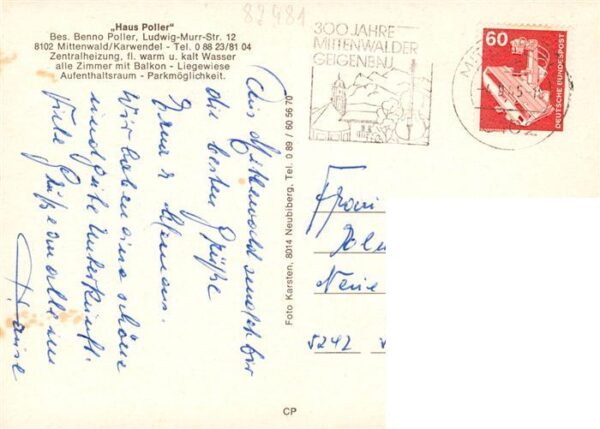 82481
„Haus Poller"
Bes. Benno Poller, Ludwig-Murr-Str. 12
8102 Mittenwald/Karwendel - Tel. 0 88 23/81 04
Zentralheizung, fl. warm u. kalt Wasser
alle Zimmer mit Balkon - Liegewiese
Aufenthaltsraum - Parkmöglichkeit.
300 JAHRE
MITTENWALDER
GEIGENBAU
60
DEUTSCHE BUNDESPOST
Aus Mittenwald sendet Dir
die besten Grüße
Erna
Wir haben eine schöne
und gute Unterkunft.
Viele Grüße an alle im
Hause
Foto Karsten, 8014 Neubiberg, Tel. 0 89 / 60 56 70
5242
CP